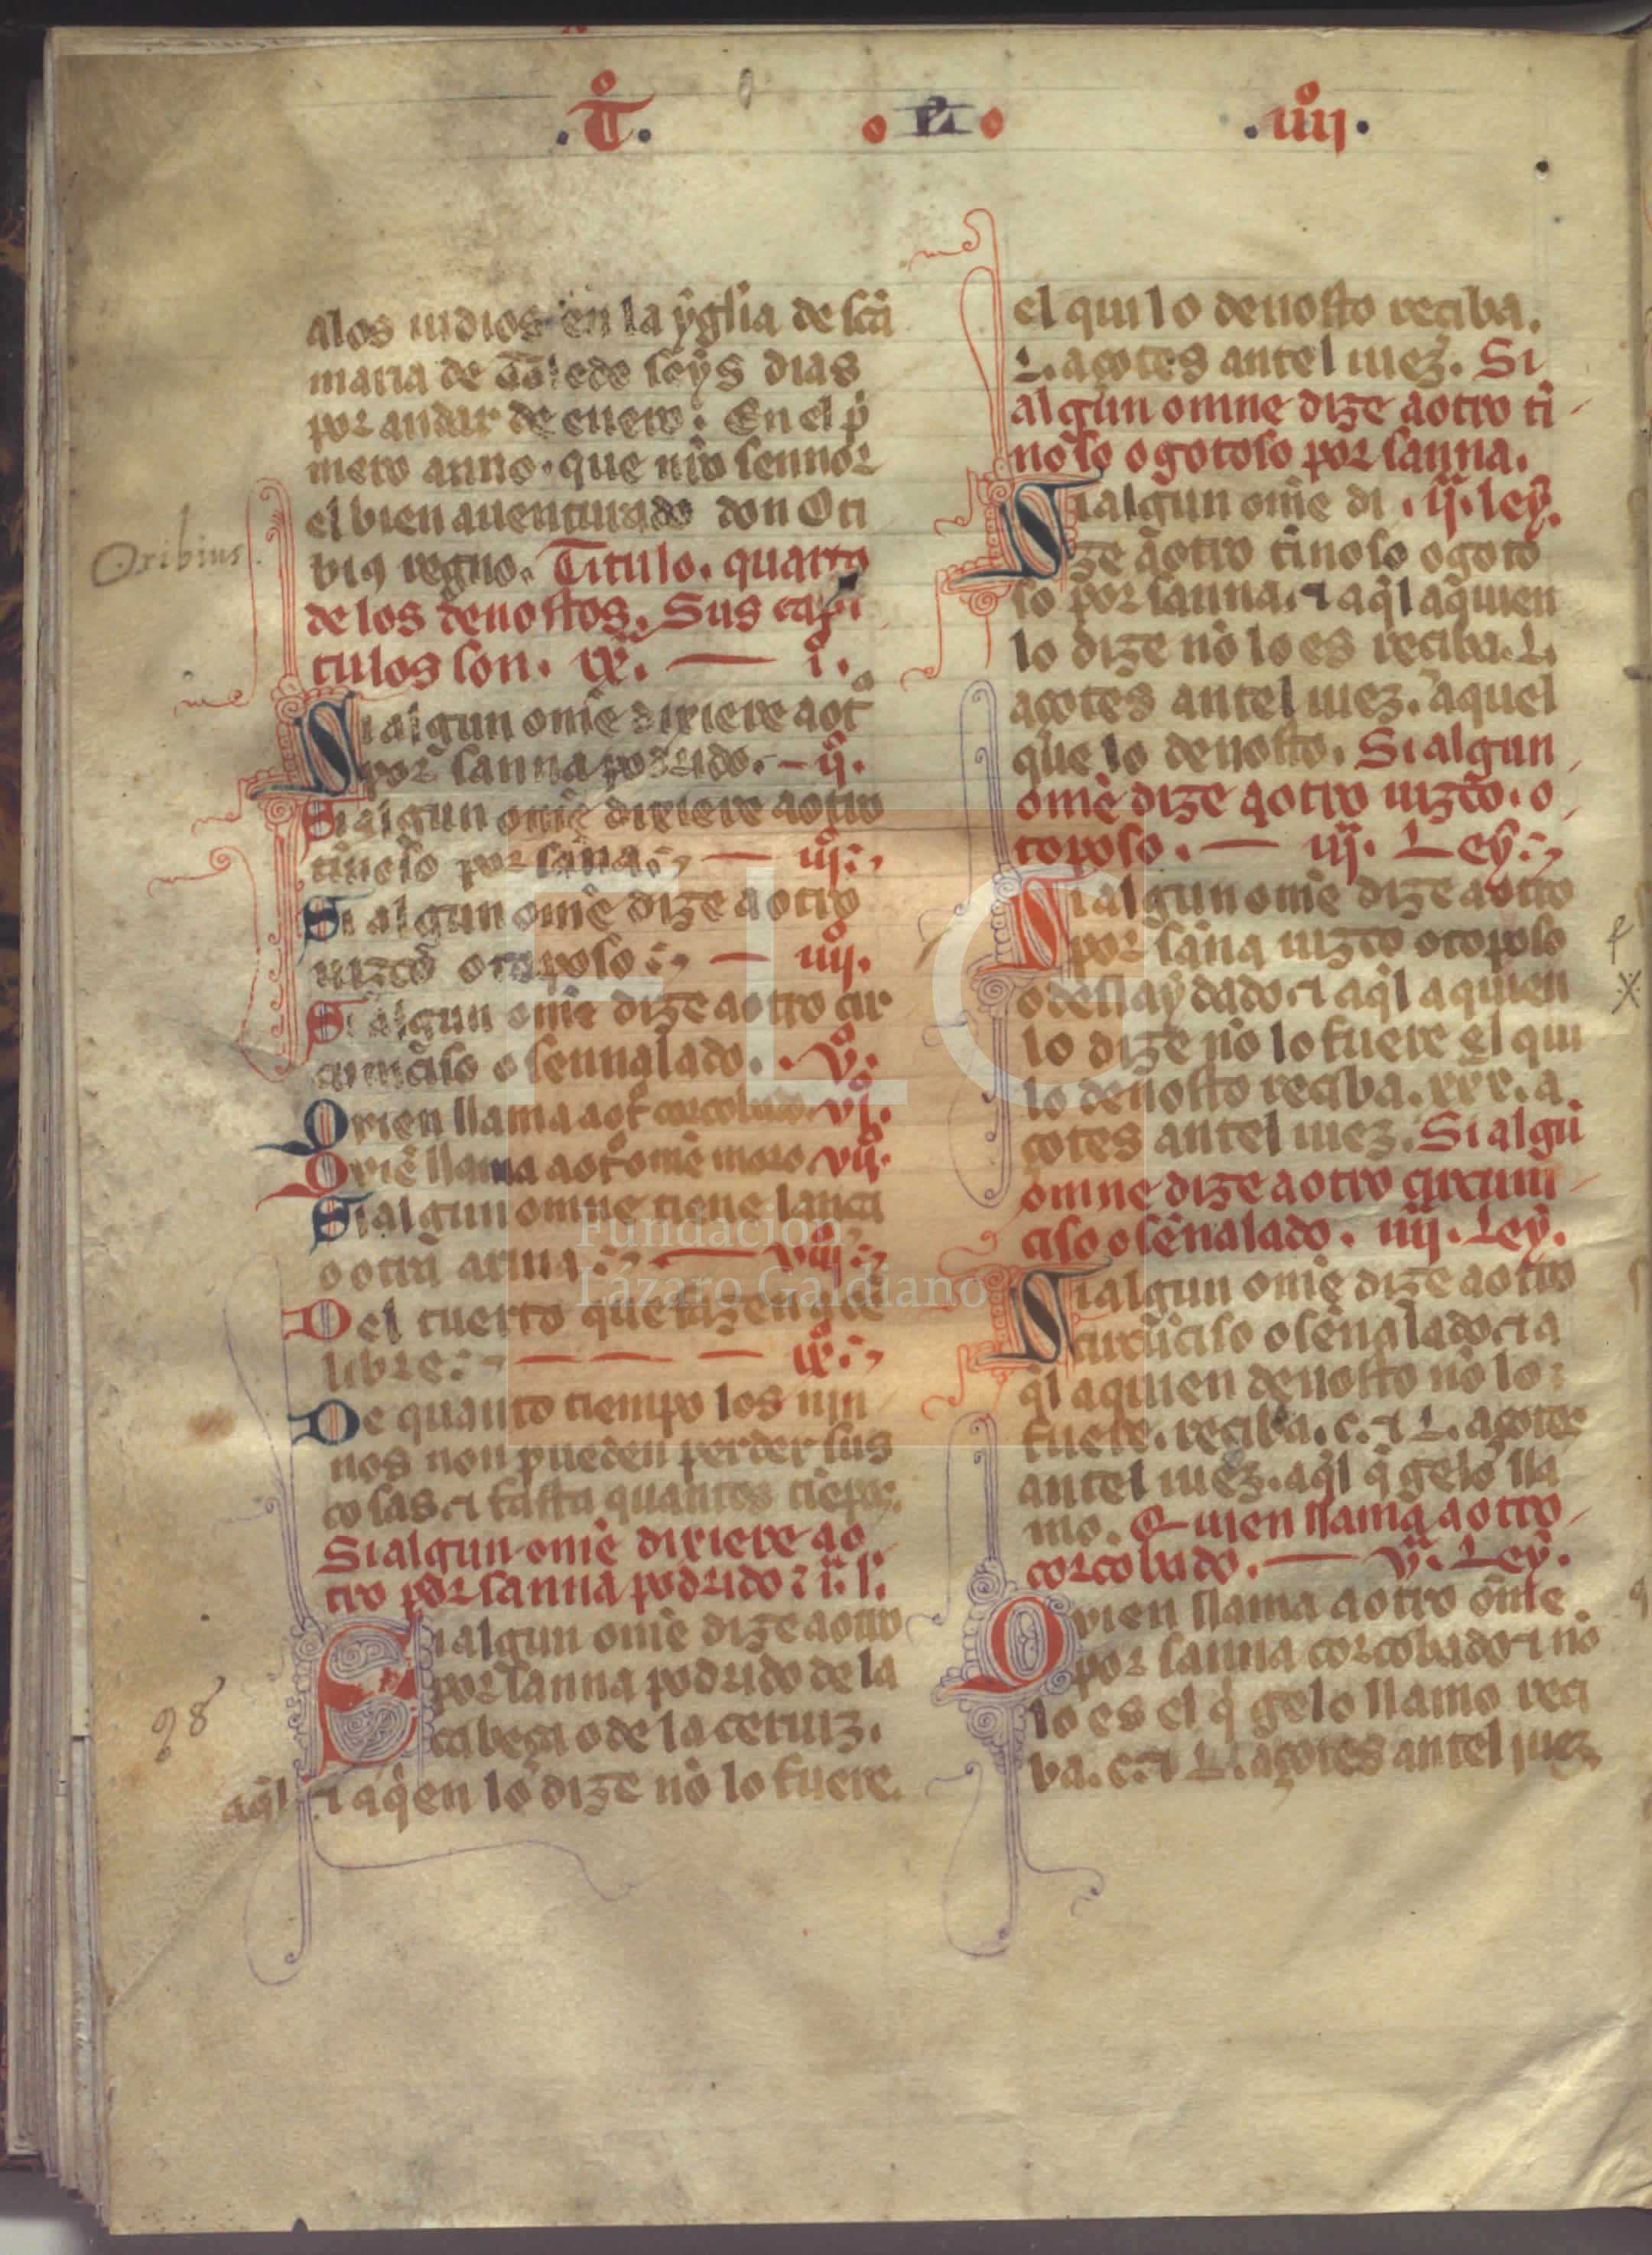 .T̊.
L
.iiij̊.
alos iudios en la ẏgl̃ia de sc̃a
maria de Toledo seẏs dias
por andar de enero: En el p̃
mero anno. que nr̃o sennor
el bien auenturado don Ori
bio regno. Titulo. quarto
delos denostos. Sus capi
tulos son. ix. — i.
Oribius
Si algun om̃e dixiere aot̊
por sanna podrido. — ij.
Si algun om̃e dixiere aotro
tinoso por sãna. — iij.
Si algun om̃e dize aotro
uizco o toposo. — iiij.
Si algun om̃e dize aotro cir
cunciso o sennalado. v.
Quien llama aot̊ corcobado. vi.
Quiẽ llama aot̊ om̃e moro. vij.
Si algun omne tiene lança
o otra arma. — viij.
Del tuerto que fazen
libre. — — — ix.
De quanto tiempo los nin
nos non pueden perder sus
cosas. ⁊ fasta quantos tiẽpos.
Si algun om̃e dixiere ao
tro por sanna podrido. i. l.
Si algun om̃e dize aotro
por sanna podrido de la
cabeça o de la ceruiz.
98
aq̃l ⁊ aq̃en lo dize nõ lo fuere.
el qui lo denosto reciba.
L. açotes antel iuez. Si
algun omne dize aotro ti
noso o gotoso por sanna.
Si algun om̃e di .ij. leẏ.
ze aotro tinoso o goto
so por sanna. ⁊ aq̃l aquien
lo dize nõ lo es reciba. L.
açotes antel iuez. aquel
que lo denosto. Si algun
om̃e dize aotro uizco. o
toposo. — iij. Leẏ.
Si algun om̃e dize aotro
por sãna uizco o toposo
o deslaẏdado. ⁊ aq̃l aquien
lo dize nõ lo fuere el qui
lo denosto reciba. xxx. a
çotes antel iuez. Si algũ
omne dize aotro circun
ciso o sẽnalado. iiij. Leẏ.
Si algun om̃e dize aotro
circũciso o sẽnalado. ⁊ a
q̃l aquien denosto nõ lo
fuere. reciba. c. ⁊ L. açotes
antel iuez. aq̃l q̃ gelo lla
mo. Quien llama aotro
corcobado. — v. Leẏ.
Quien llama aotro om̃e
por sanna corcobado. ⁊ nõ
lo es el q̃ gelo llamo reci
ba. c. ⁊ L. açotes antel juez
FLG
Fundación
Lázaro Galdiano